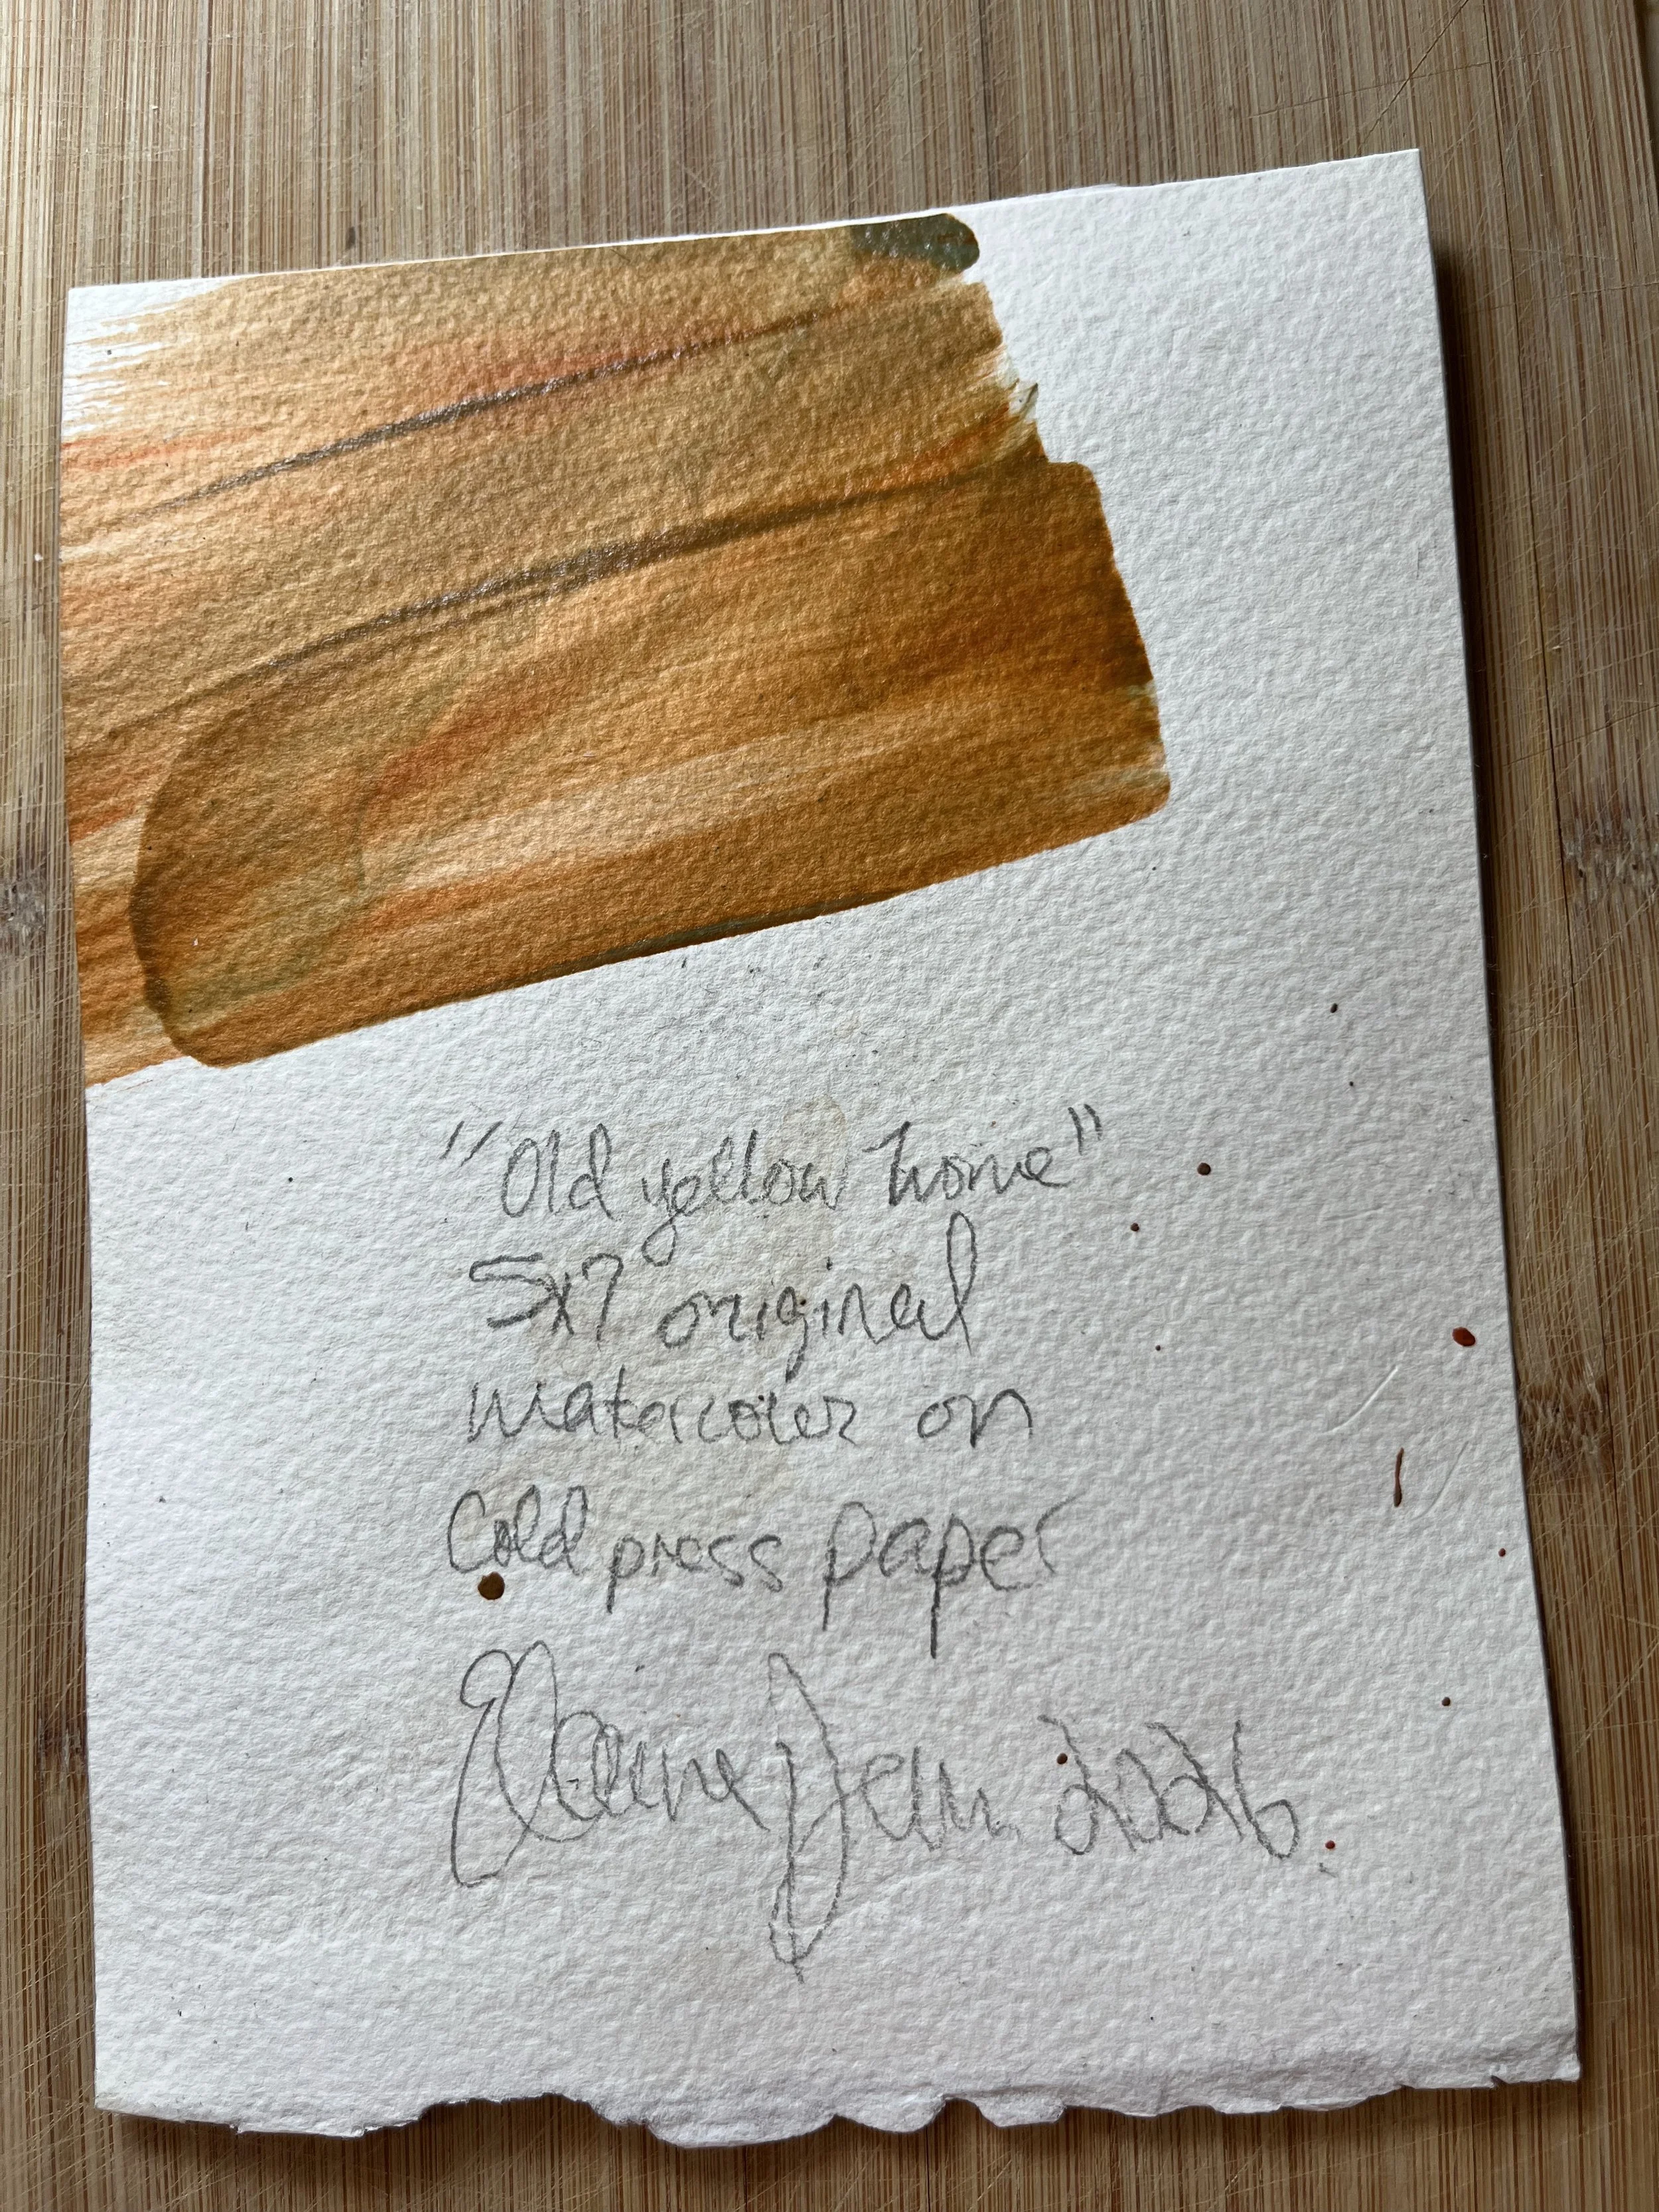 "Old yellow home"
5x7 original
watercolor on
Cold press paper
Elaine Jean 2026.